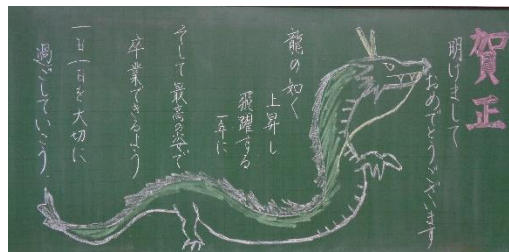 賀正
明けまして
おめでとうございます
龍の如く
上昇し
飛躍する
一年に
そして最高の姿で
卒業できるよう
一日一日を大切に
過ごしていこう。